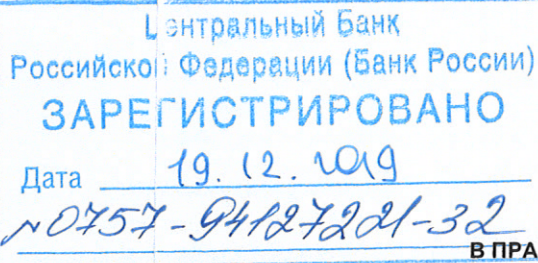 Центральный Банк
Российской Федерации (Банк России)
ЗАРЕГИСТРИРОВАНО
Дата 19.12.2019
№0757-94127221-32
В ПРА